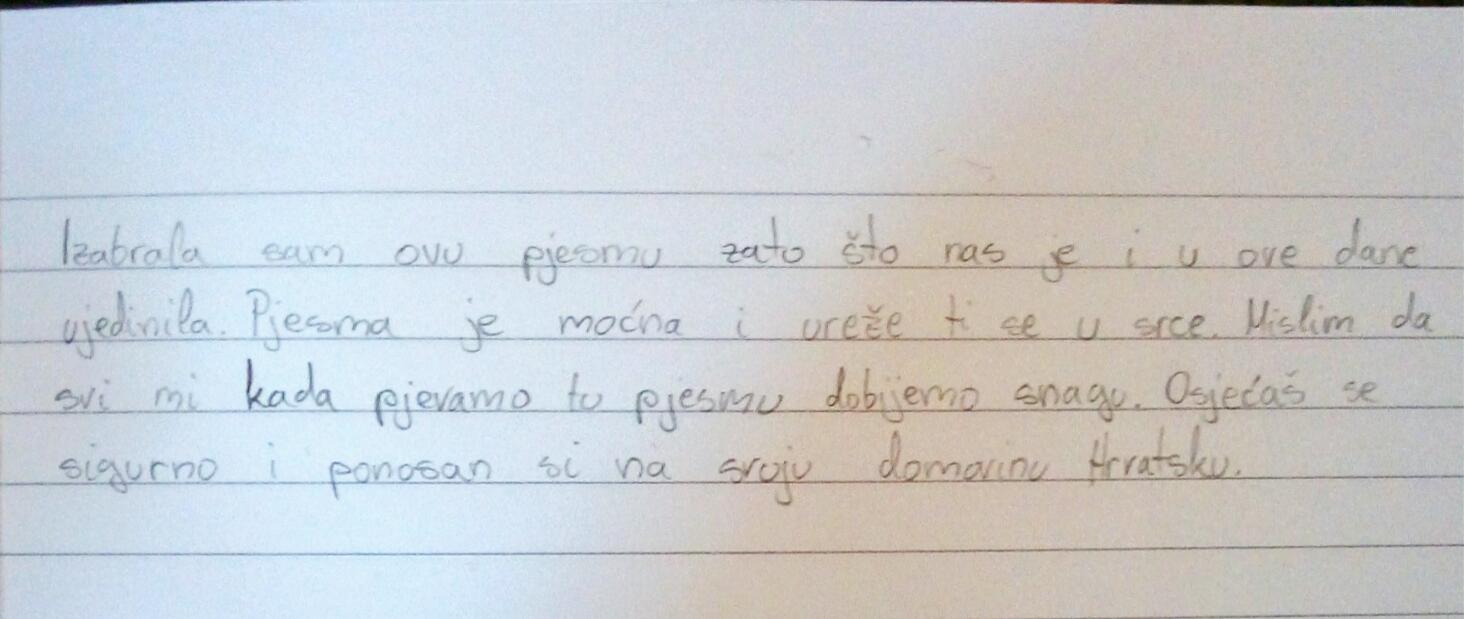 Izabrala sam ovu pjesmu zato što nas je i u ove dane
ujedinila. Pjesma je moćna i ureže ti se u srce. Mislim da
svi mi kada pjevamo tu pjesmu dobijemo snagu. Osjećaš se
sigurno i ponosan si na svoju domovinu Hrvatsku.